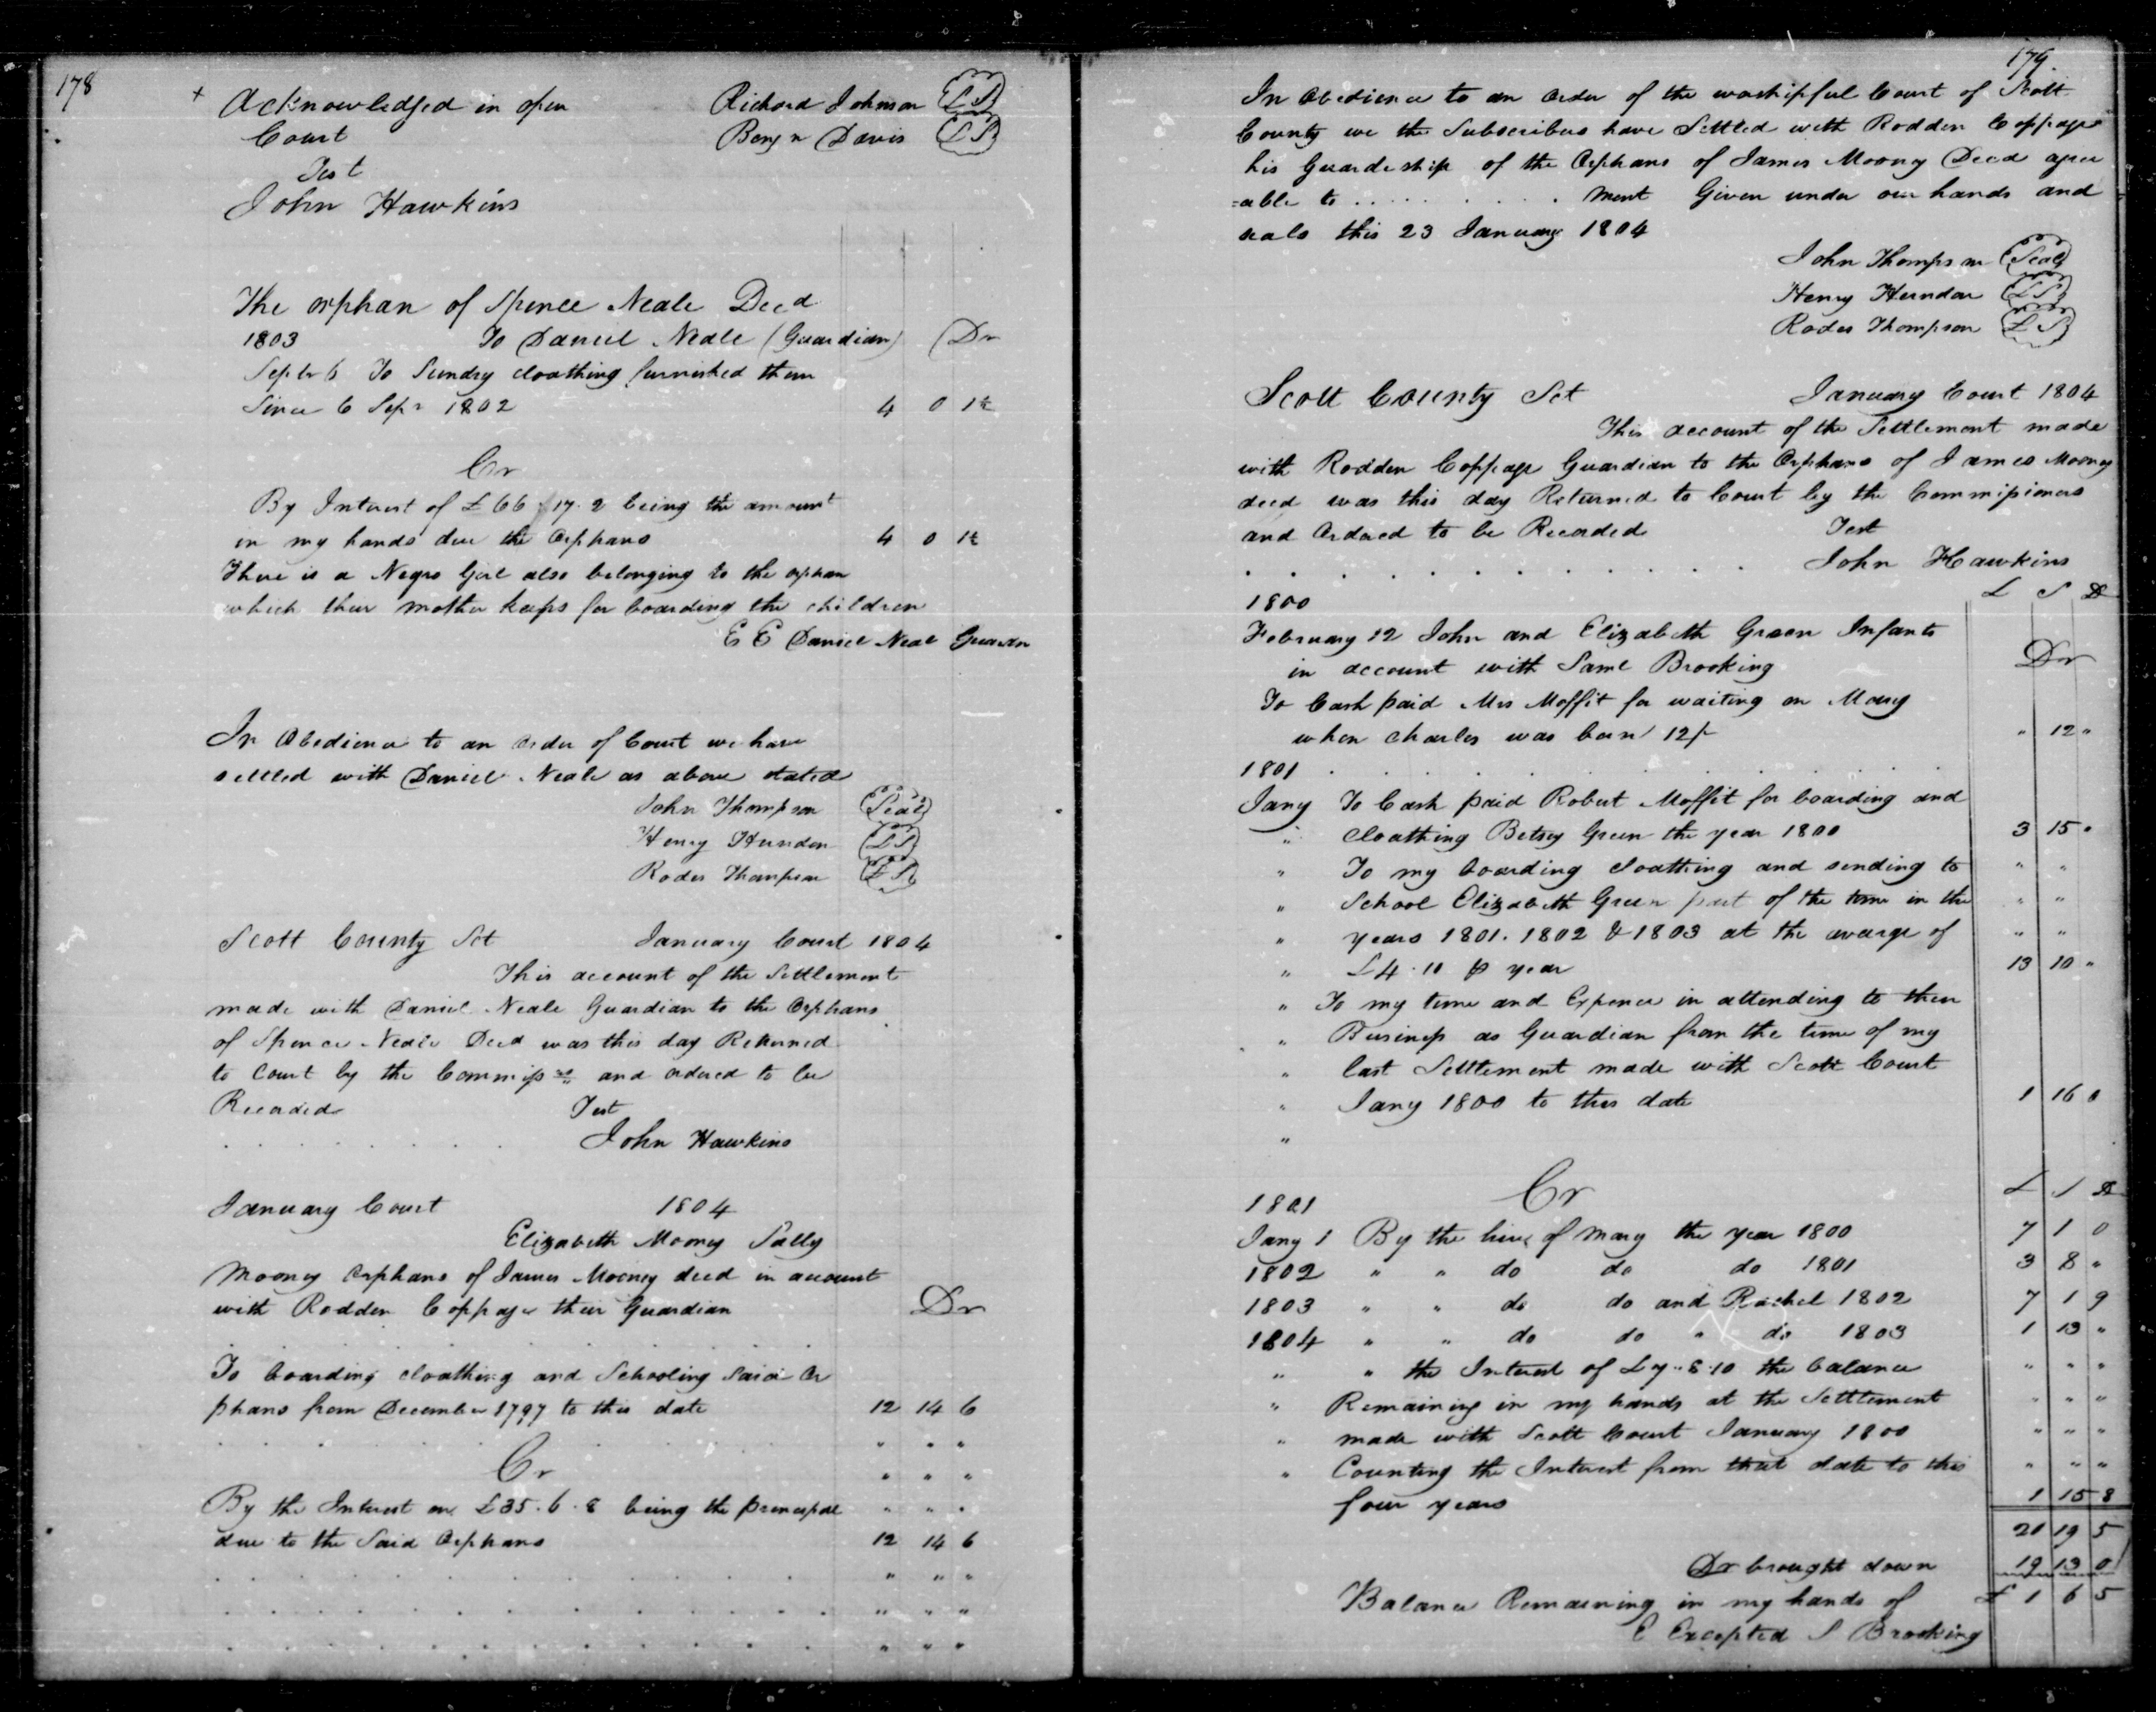 178
+ Acknowledged in open Richard Johnson (L S)
Court Benj n Davis (L S)
Test
John Hawkins
The orphan of Spence Neale Decd
1803 To Daniel Neale (Guardian) (Dr
Septr 6 To Sundry cloathing furnished them
Since 6 Sepr 1802 4 0 1½
Cr
By Interest of £ 66 17. 2 being the amount
in my hands due the Orphans 4 0 1½
There is a Negro Girl also belonging to the orphan
which their mother keeps for boarding the children
E E Daniel Neal Guardn
In Obedience to an order of Court we have
settled with Daniel Neale as above stated
John Thompson (Seal)
Henry Herndon (L S)
Rodes Thompson (L S)
Scott County Sct January Court 1804
This account of the Settlement
made with Daniel Neale Guardian to the Orphans
of Spence Neale Decd was this day Returned
to Court by the Commiss rs and ordered to be
Recorded Test
John Hawkins
January Court 1804
Elizabeth Mooney Sally
Mooney Orphans of James Mooney decd in account
with Rodden Coppage their Guardian Dr
To boarding cloathing and Schooling said Or
phans from December 1797 to this date 12 14 6
" " "
Cr " " "
By the Interest on £35. 6. 8 being the principal " " "
due to the Said Orphans 12 14 6
" " "
" " "
" " "
179
In Obedience to an order of the worshipful Court of Scott
County we the Subscribers have Settled with Rodden Coppage
his Guardeship of the Orphans of James Mooney Decd agree
=able to . . . . . . . . . ment Given under our hands and
seals this 23 January 1804
John Thompson (Seal)
Henry Herndon (L S)
Rodes Thompson (L S)
Scott County Sct January Court 1804
This account of the Settlement made
with Rodden Coppage Guardian to the Orphans of James Mooney
decd was this day Returned to Court by the Commissioners
and Ordered to be Recorded Test
. . . . . . . . . . John Hawkins
1800 £ S D
February 12 John and Elizabeth Green Infants
in account with Saml Brooking Dr
To Cash paid Mrs Moffit for waiting on Mary
when Charles was born 12/ " 12 "
1801
Jany To Cash paid Robert Moffit for boarding and
" cloathing Betsey Green the year 1800 3 15 "
" To my boarding cloathing and sending to " "
" School Elizabeth Green part of the time in the " "
" years 1801. 1802 & 1803 at the avarge of " "
" £4. 10 p year 13 10 "
" To my time and Expence in attending to their
" Business as Guardian from the time of my
" last Settlement made with Scott Court
" Jany 1800 to this date 1 16 0
"
1801 Cr £ S D
Jany 1 By the hire of Mary the year 1800 7 1 0
1802 " " do do do 1801 3 8 "
1803 " " do do and Rachel 1802 7 1 9
1804 " " do do " do 1803 1 13 "
" " the Interest of £7. 8. 10 the balance " " "
" Remaining in my hands at the Settlement " " "
" made with Scott Court January 1800 " " "
" Counting the Interest from that date to this " " "
four years 1 15 8
20 19 5
Dr brought down 19 13 0
Balance Remaining in my hands of £ 1 6 5
E Excepted S Brooking